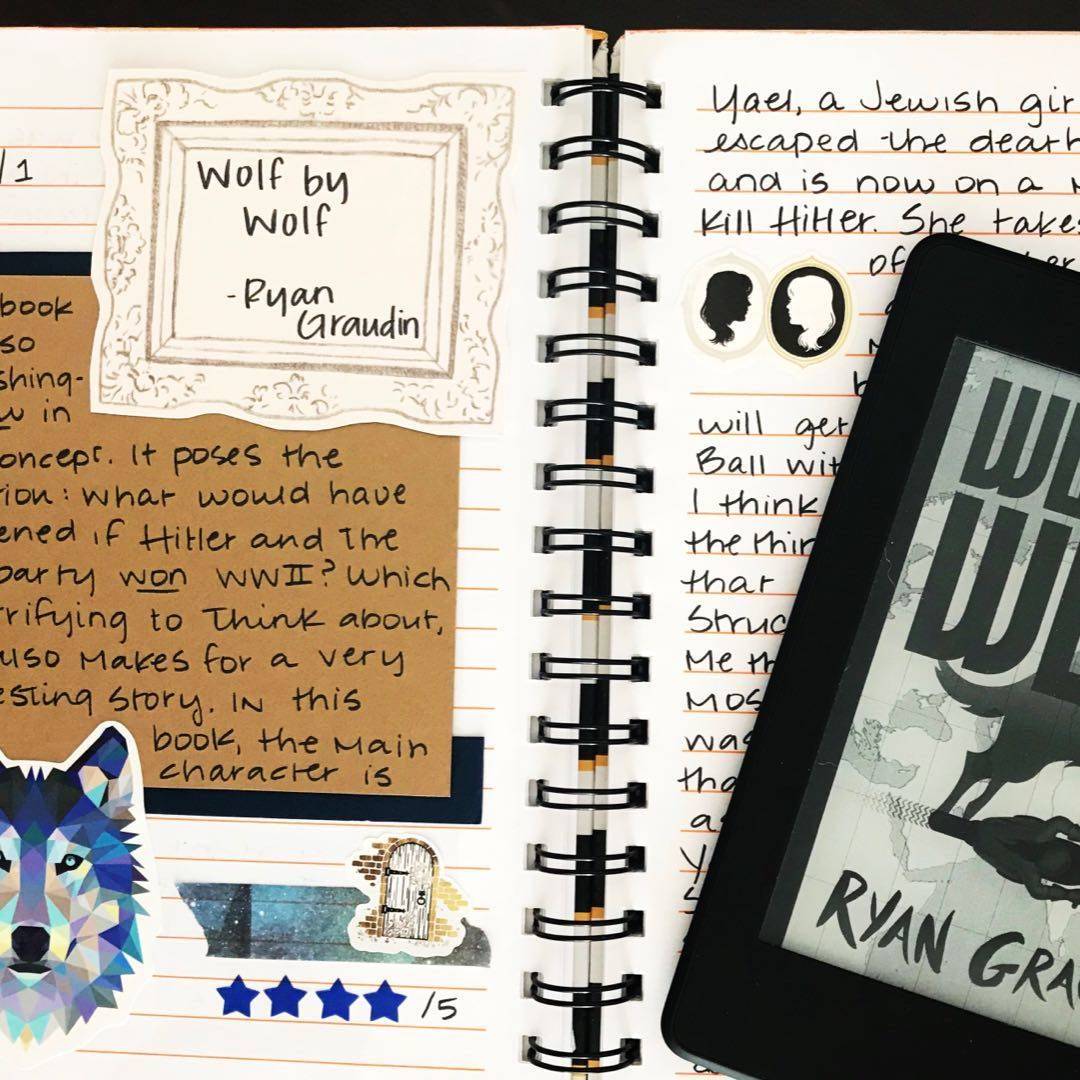 /1
Wolf by
Wolf
-Ryan
Graudin
book
so
shing-
w in
oncept. It poses the
ion: what would have
ened if Hitler and The
party won WWII? Which
rrifying to Think about,
also Makes for a very
esting story. In this
book, the Main
character is
/5
Yael, a Jewish gir
escaped the death
and is now on a
Kill Hitler. She takes
of
will get
Ball wit
I think
the thir
that
Struc
Me th
Mos
was
tha
a
Y
RYAN GRA